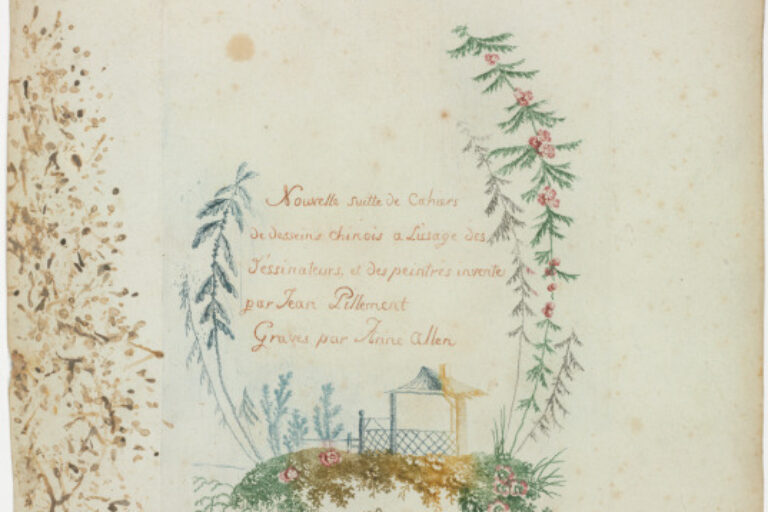 Nouvelle suitte de Cahiers
de desseins chinois a Lusage des
Dessinateurs, et des peintres inventés
par Jean Pillement
Gravés par Anne Allen